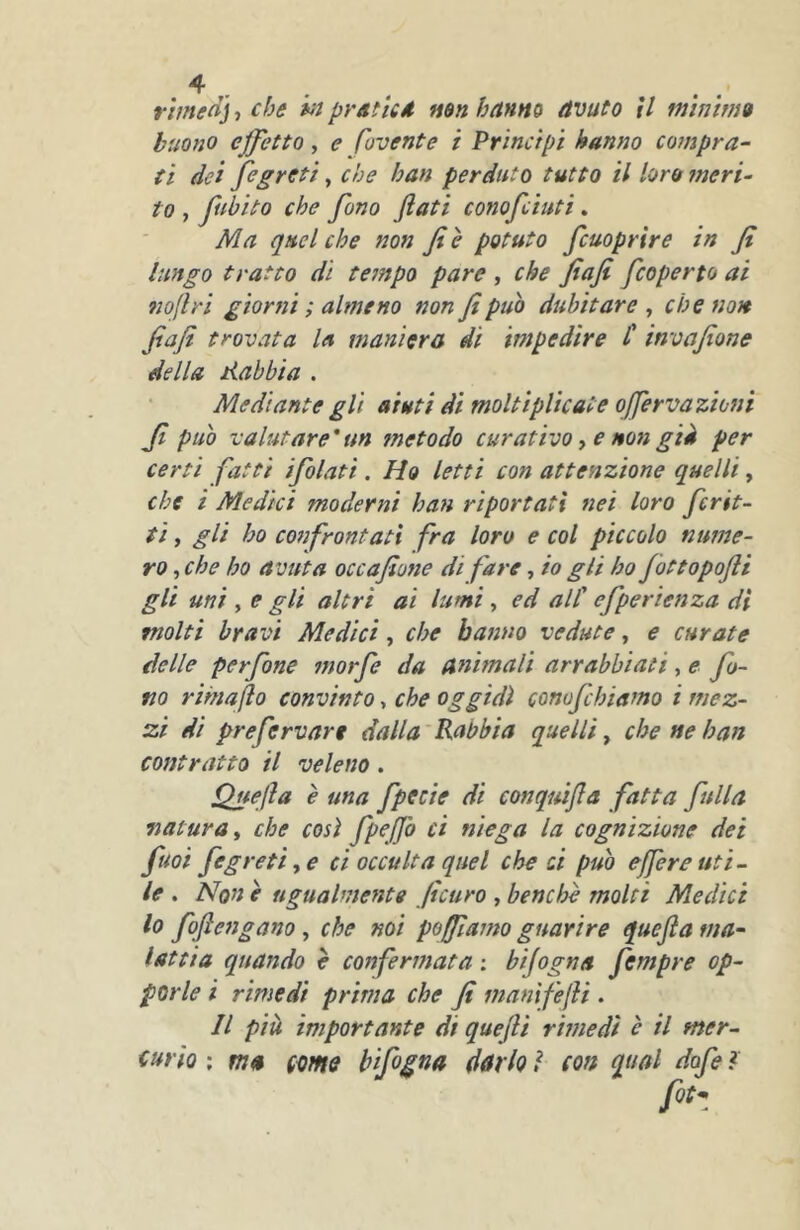 4
rimedj, che in pratica non hanno avuto il minimo
buono effetto, e ſovente i Principi hanno compra-
ti dei ſegreti, che han perduto tutto il loro meri-
to, ſubito che ſono ſtati conoſciuti.
Ma quel che non ſi è potuto ſcuoprire in ſì
lungo tratto di tempo pare, che ſiaſi ſcoperto ai
noſtri giorni; almeno non ſi può dubitare, che non
ſiaſi trovata la maniera di impedire l' invaſione
della Rabbia.
Mediante gli aiuti di moltiplicate oſſervazioni
ſi può valutare un metodo curativo, e non già per
certi fatti iſolati. Ho letti con attenzione quelli,
che i Medici moderni han riportati nei loro ſcrit-
ti, gli ho confrontati fra loro e col piccolo nume-
ro, che ho avuta occaſione di fare, io gli ho ſottopoſti
gli uni, e gli altri ai lumi, ed all' eſperienza di
molti bravi Medici, che hanno vedute, e curate
delle perſone morſe da animali arrabbiati, e ſo-
no rimaſto convinto, che oggidì conoſchiamo i mez-
zi di preſervare dalla Rabbia quelli, che ne han
contratto il veleno.
Queſta è una ſpecie di conquiſta fatta ſulla
natura, che così ſpeſſo ci niega la cognizione dei
ſuoi ſegreti, e ci occulta quel che ci può eſſere uti-
le. Non è ugualmente ſicuro, benchè molti Medici
lo ſoſtengano, che noi poſſiamo guarire queſta ma-
lattia quando è confermata: biſogna ſempre op-
porle i rimedi prima che ſi manifeſti.
Il più importante di queſti rimedì è il mer-
curio: ma come biſogna darlo? con qual doſe?
ſot-